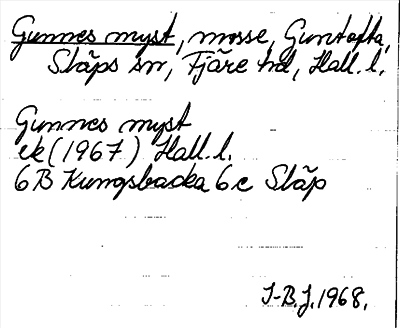 Gunnes myst, mosse, Guntofta,
Släps sn, Fjäre hd, Hall. l.
Gunnes myst
ek (1967) Hall. l.
6B Kungsbacka 6c Släp
I-B.J. 1968.